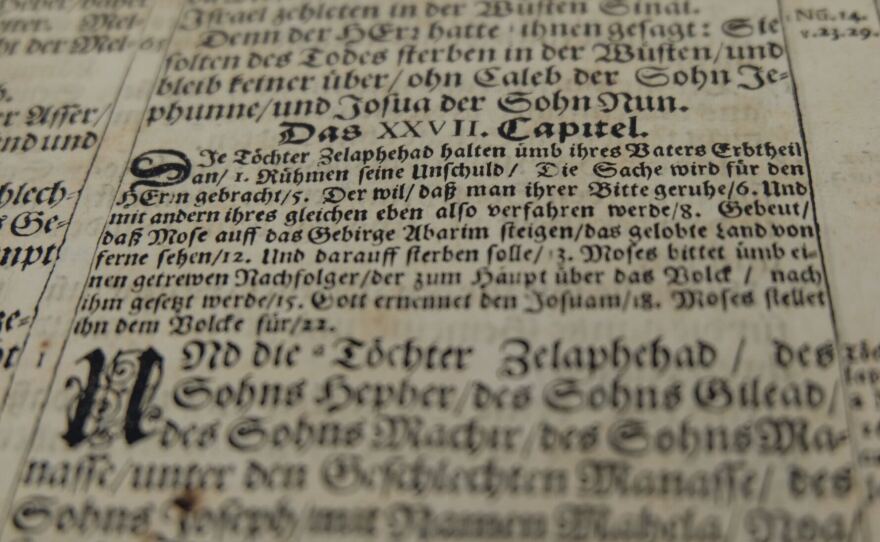 Israel zehleten in der Wüsten Sinai.
Denn der HErr hatte ihnen gesagt: Sie
solten des Todes sterben in der Wüsten/und
bleib keiner über/ohn Caleb der Sohn Je-
phunne/und Josua der Sohn Nun.
Das XXVII. Capitel.
DIe Töchter Zelaphehad halten ümb ihres Vaters Erbtheil
an/1. Rühmen seine Unschuld/ Die Sache wird für den
HErrn gebracht/5. Der wil/daß man ihrer Bitte geruhe/6. Und
mit andern ihres gleichen eben also verfahren werde/8. Gebeut/
daß Mose auff das Gebirge Abarim steigen/das gelobte Land von
ferne sehen/12. Und darauff sterben solle/13. Moses bittet ümb ei-
nen getrewen Nachfolger/der zum Häupt über das Volck / nach
ihm gesetzt werde/15. Gott ernennet den Josuam/18. Moses stellet
ihn dem Volcke für/22.
1 UNd die a Töchter Zelaphehad / des
Sohns Hepher/des Sohns Gilead/
des Sohns Machir/des Sohns Ma-
nasse/unter den Geschlechten Manasse/ des
Sohns Joseph/mit Namen Mahela, Noa/
Nu.14.
v.23.29.
r Asser/
nd und
hlech-
s Ge-
mpt